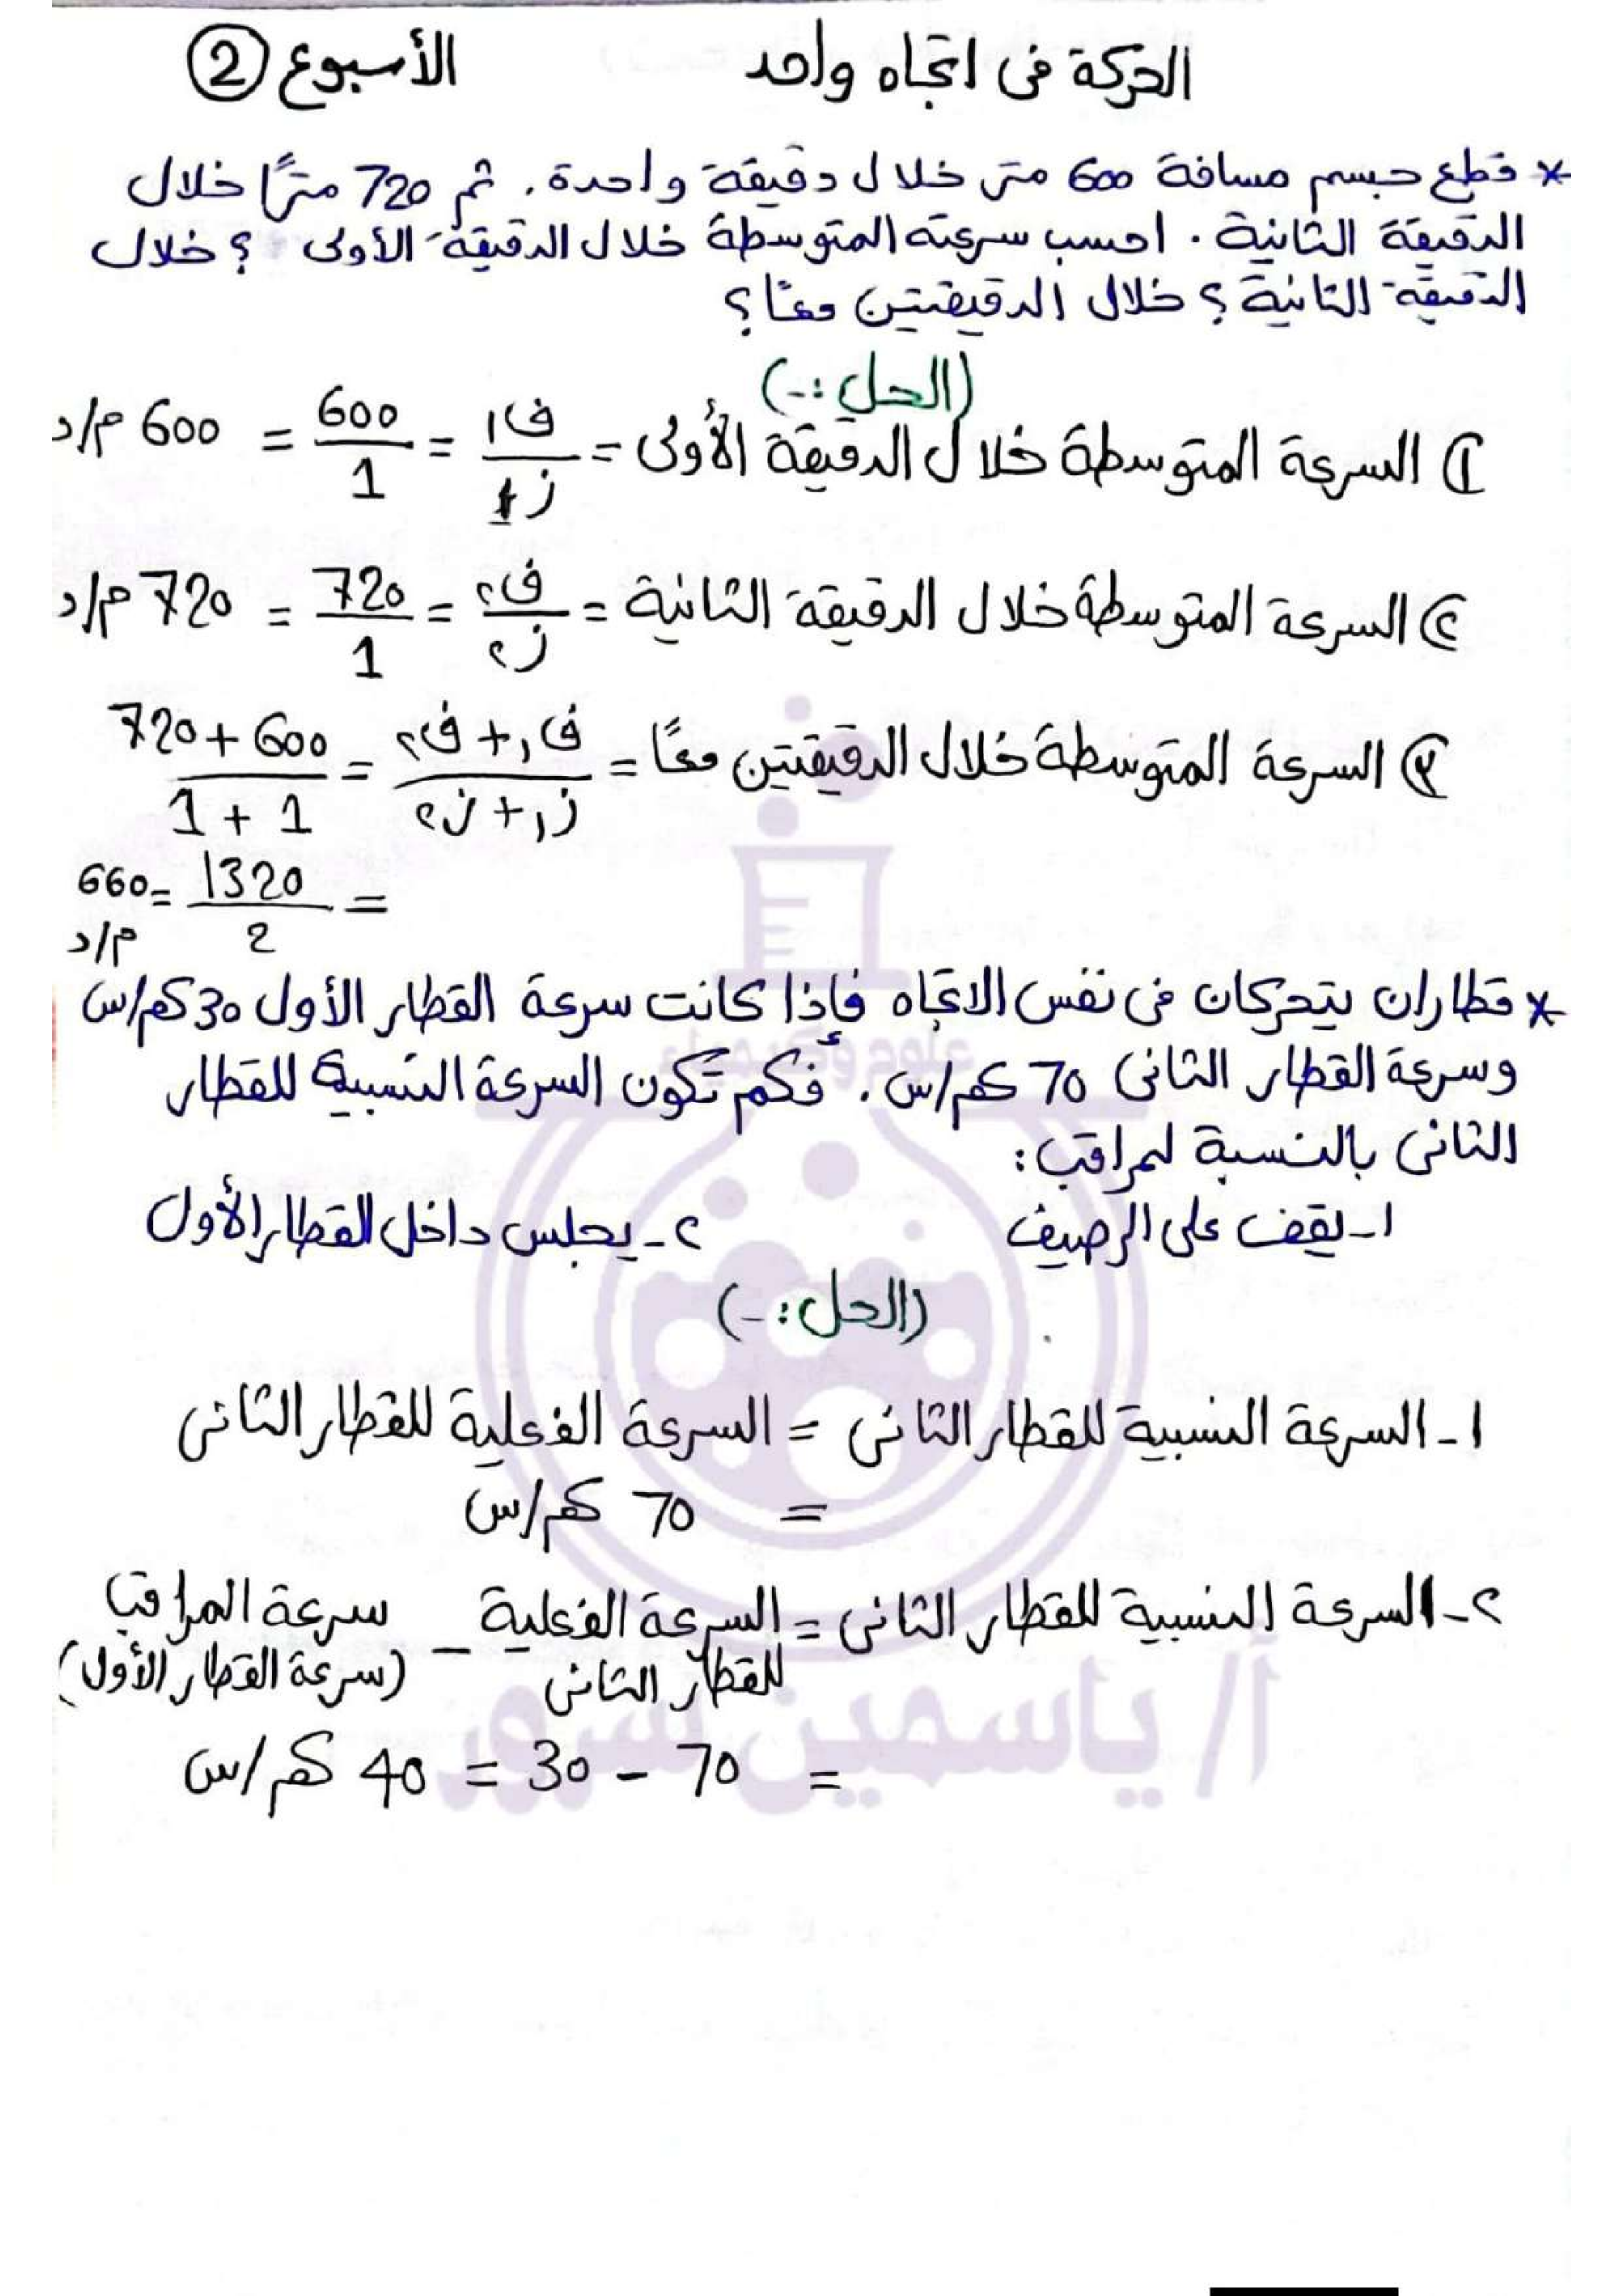 الحركة فى اتجاه واحد الأسبوع 2
* قطع جسم مسافة 600 متر خلال دقيقة واحدة. ثم 720 مترًا خلال
الدقيقة الثانية. احسب سرعته المتوسطة خلال الدقيقة الأولى؟ خلال
الدقيقة الثانية؟ خلال الدقيقتين معًا؟
(الحل:-)
١) السرعة المتوسطة خلال الدقيقة الأولى = ف١/ز١ = 600/1 = 600 م/د
٢) السرعة المتوسطة خلال الدقيقة الثانية = ف٢/ز٢ = 720/1 = 720 م/د
٣) السرعة المتوسطة خلال الدقيقتين معًا = ف١ + ف٢/ز١ + ز٢ = 600 + 720/1 + 1
= 1320/2 = 660 م/د
* قطاران يتحركان فى نفس الاتجاه فإذا كانت سرعة القطار الأول 30 كم/س
وسرعة القطار الثانى 70 كم/س. فكم تكون السرعة النسبية للقطار
الثانى بالنسبة لمراقب:
١- يقف على الرصيف ٢- يجلس داخل القطار الأول
(الحل:-)
١- السرعة النسبية للقطار الثانى = السرعة الفعلية للقطار الثانى
= 70 كم/س
٢- السرعة النسبية للقطار الثانى = السرعة الفعلية – سرعة المراقب
للقطار الثانى (سرعة القطار الأول)
= 70 - 30 = 40 كم/س
أ/ ياسمين سرور